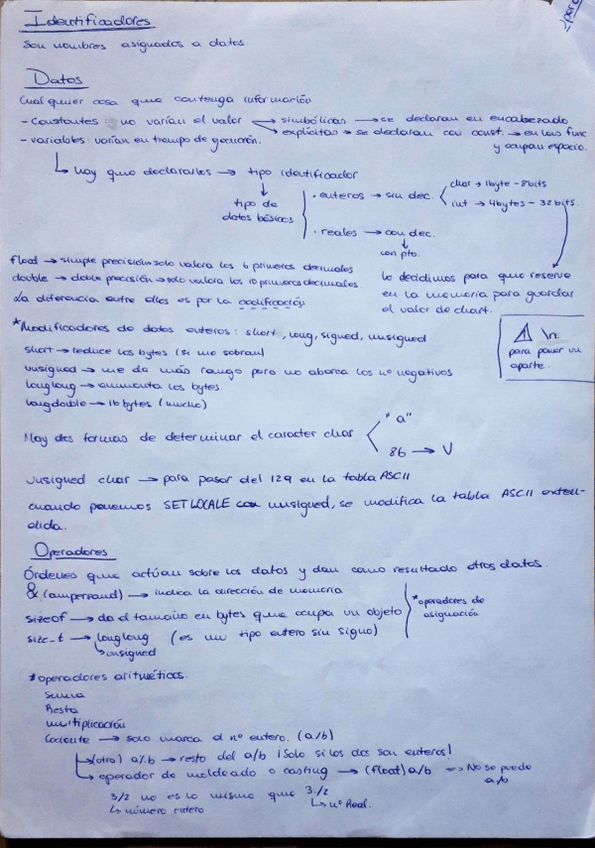 Identificadores
Son nombres asignados a datos
Datos
Cualquier cosa que contenga información
- Constantes: no varían el valor → simbólicas → se declaran en encabezado
→ explícitas → se declaran con const. → en las func
- variables: varían en tiempo de ejecución. y ocupan espacio.
↳ hay que declararlos → tipo identificador
↓
tipo de datos básicos
· enteros → sin dec. char → 1byte - 8bits
int → 4bytes - 32 bits.
· reales → con dec.
↓
con pto.
float → simple precisión solo valora los 6 primeros decimales
double → doble precisión → solo valora los 10 primeros decimales.
La diferencia entre ellos es por la codificación
lo decidimos para que reserve
en la memoria para guardar
el valor de chart.
*Modificadores de datos enteros: short, long, signed, unsigned
short → reduce los bytes (si me sobran)
unsigned → me da más rango pero no abarca los nº negativos
longlong → aumenta los bytes.
longdouble → 16 bytes (mucho)
⚠ \n
para poner un
aparte.
Hay dos formas de determinar el caracter char "a"
86 → V
unsigned char → para pasar del 129 en la tabla ASCII
cuando ponemos SETLOCALE con unsigned, se modifica la tabla ASCII exten-
dida.
Operadores
Órdenes que actúan sobre los datos y dan como resultado otros datos.
& (ampersand) → indica la dirección de memoria
sizeof → da el tamaño en bytes que ocupa un objeto
size_t → longlong (es un tipo entero sin signo)
↳ unsigned
*operadores de
asignación
*operadores aritméticos.
Suma
Resta
multiplicación
Cociente → solo marca el nº entero. (a/b)
↳ (otro) a%b → resto del a/b ¡Solo si los dos son enteros!
↳ operador de moldeado o casting → (float) a/b => No se puede
a%b
3/2 no es lo mismo que 3./2
↳ número entero ↳ nº Real.